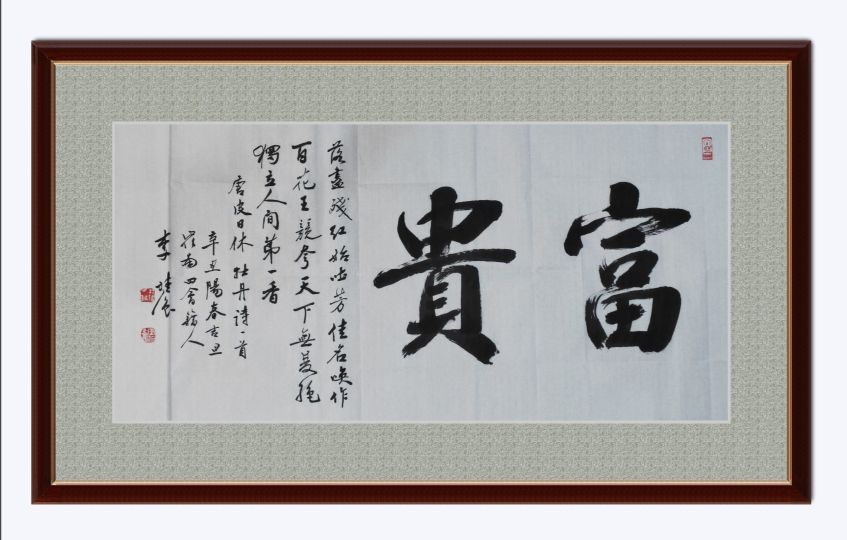 富貴
落盡殘红始吐芳佳名唤作
百花王競夸天下無雙艳
獨立人间第一香
唐皮日休牡丹诗一首
辛丑陽春吉旦
南四會 人
李